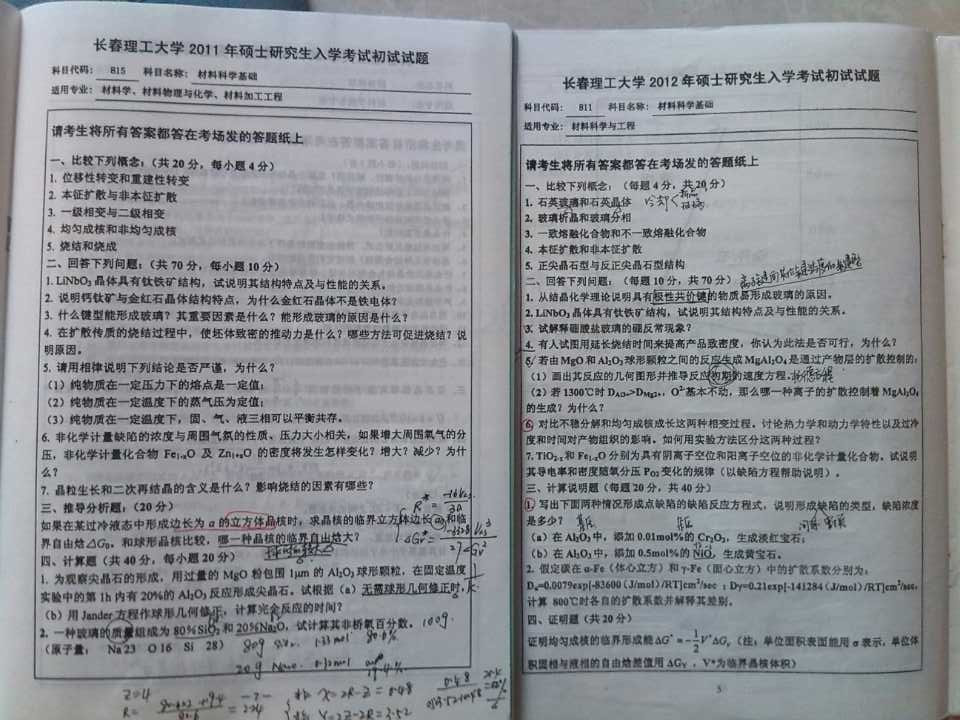 长春理工大学 2011 年硕士研究生入学考试初试试题
科目代码: 815 科目名称: 材料科学基础
适用专业: 材料学、材料物理与化学、材料加工工程
请考生将所有答案都答在考场发的答题纸上
一、比较下列概念:(共 20 分,每小题 4 分)
1. 位移性转变和重建性转变
2. 本征扩散与非本征扩散
3. 一级相变与二级相变
4. 均匀成核和非均匀成核
5. 烧结和烧成
二、回答下列问题:(共 70 分,每小题 10 分)
1. LiNbO3 晶体具有钛铁矿结构,试说明其结构特点及与性能的关系。
2. 说明钙钛矿与金红石晶体结构特点,为什么金红石晶体不是铁电体?
3. 什么键型能形成玻璃?其重要因素是什么?能形成玻璃的原因是什么?
4. 在扩散传质的烧结过程中,使坯体致密的推动力是什么?哪些方法可促进烧结?说
明原因。
5. 请用相律说明下列结论是否严谨,为什么?
(1)纯物质在一定压力下的熔点是一定值;
(2)纯物质在一定温度下的蒸气压为定值;
(3)纯物质在一定温度下,固、气、液三相可以平衡共存。
6. 非化学计量缺陷的浓度与周围气氛的性质、压力大小相关,如果增大周围氧气的分
压,非化学计量化合物 Fe1-xO 及 Zn1+xO 的密度将发生怎样变化?增大?减少?为什
么?
7. 晶粒生长和二次再结晶的含义是什么?影响烧结的因素有哪些?
三、推导分析题:(20 分)
如果在某过冷液态中形成边长为 a 的立方体晶核时,求晶核的临界立方体边长 a 和临
界自由焓△G。和球形晶核比较,哪一种晶核的临界自由焓大?
四、计算题(共 40 分,每小题 20 分)
1. 为观察尖晶石的形成,用过量的 MgO 粉包围 1μm 的 Al2O3 球形颗粒,在固定温度
实验中的第 1h 内有 20%的 Al2O3 反应形成尖晶石。试根据(a)无需球形几何修正时,
(b)用 Jander 方程作球形几何修正,计算完全反应的时间?
2. 一种玻璃的质量组成为 80%SiO2 和 20%Na2O,试计算其非桥氧百分数。 100g
(原子量: Na 23 O 16 Si 28)
Z=4
X=2R-Z=0.48
Y=2Z-2R=3.52
长春理工大学 2012 年硕士研究生入学考试初试试题
科目代码: 811 科目名称: 材料科学基础
适用专业: 材料科学与工程
请考生将所有答案都答在考场发的答题纸上
一、比较下列概念:(每题 4 分,共 20 分)
1. 石英玻璃和石英晶体 冷却
2. 玻璃析晶和玻璃分相
3. 一致熔融化合物和不一致熔融化合物
4. 本征扩散和非本征扩散
5. 正尖晶石型与反正尖晶石型结构
二、回答下列问题:(每题 10 分,共 70 分)
1. 从结晶化学理论说明具有极性共价键的物质易形成玻璃的原因。
2. LiNbO3 晶体具有钛铁矿结构,试说明其结构特点及与性能的关系。
3. 试解释硼酸盐玻璃的硼反常现象?
4. 有人试图用延长烧结时间来提高产品致密度,你认为此法是否可行,为什么?
5. 若由 MgO 和 Al2O3 球形颗粒之间的反应生成 MgAl2O4 是通过产物层的扩散控制的:
(1)画出其反应的几何图形并推导反应初期的速度方程。
(2)若 1300℃时 DAl3+>DMg2+,O2-基本不动,那么哪一种离子的扩散控制着 MgAl2O4
的生成?为什么?
6. 对比不稳分解和均匀成核成长这两种相变过程。讨论热力学和动力学特性以及过冷
度和时间对产物组织的影响。如何用实验方法区分这两种过程?
7. TiO2-x 和 Fe1-xO 分别为具有阴离子空位和阳离子空位的非化学计量化合物。试说明
其导电率和密度随氧分压 PO2 变化的规律(以缺陷方程帮助说明)。
三、计算说明题(每题 20 分,共 40 分)
1. 写出下面两种情况形成点缺陷的缺陷反应方程式,说明形成缺陷的类型,缺陷浓度
是多少?
(a)在 Al2O3 中,添加 0.01mol%的 Cr2O3,生成淡红宝石;
(b)在 Al2O3 中,添加 0.5mol%的 NiO,生成黄宝石。
2. 假定碳在 α-Fe(体心立方)和 γ-Fe(面心立方)中的扩散系数分别为:
Dα=0.0079exp[-83600(J/mol)/RT]cm2/sec ; Dγ=0.21exp[-141284(J/mol)/RT]cm2/sec,
计算 800℃时各自的扩散系数并解释其差别。
四、证明题(共 20 分)
证明均匀成核的临界形成能 ΔG* = -1/2 V*ΔGV (注:单位面积表面能用 σ 表示,单位体
积固相与液相的自由焓差值用 ΔGV,V*为临界晶核体积)
5